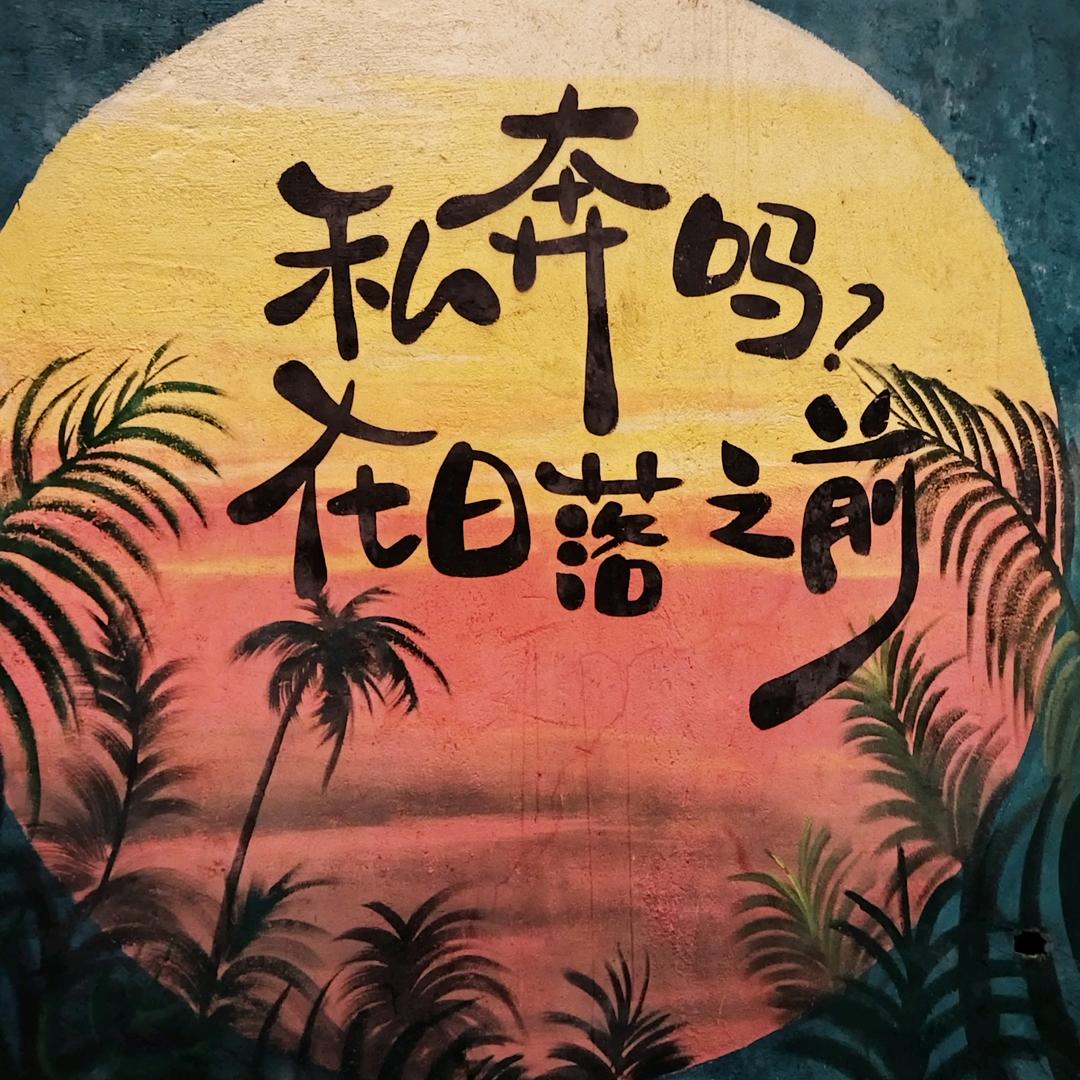 私奔吗?
在日落之前